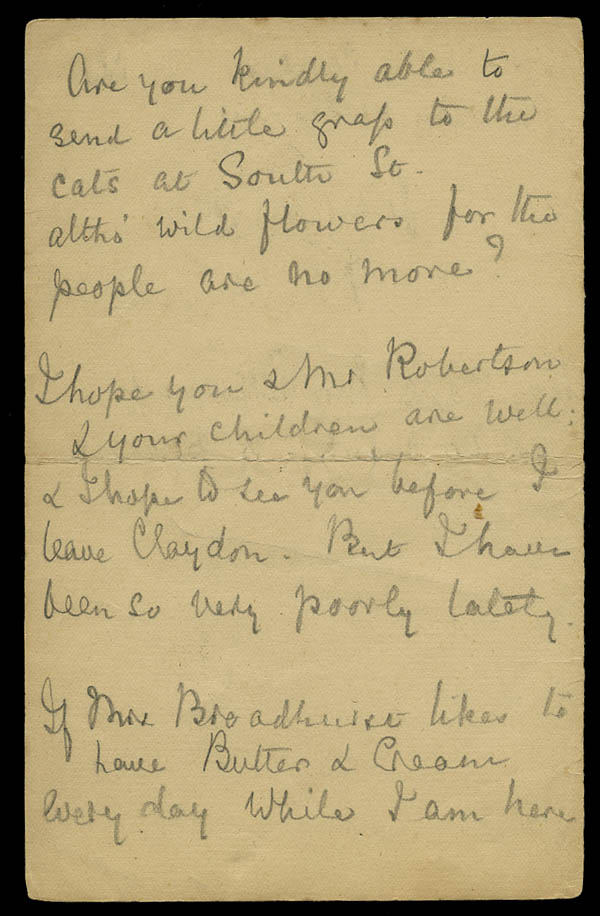 Are you kindly able to
send a little grass to the
cats at South St.
altho' wild flowers for the
people are no more?
I hope you & Mr Robertson
& your children are well:
& I hope to see you before I
leave Claydon. But I have
been so very poorly lately.
If Mrs Broadhurst likes to
have Butter & Cream
every day while I am here